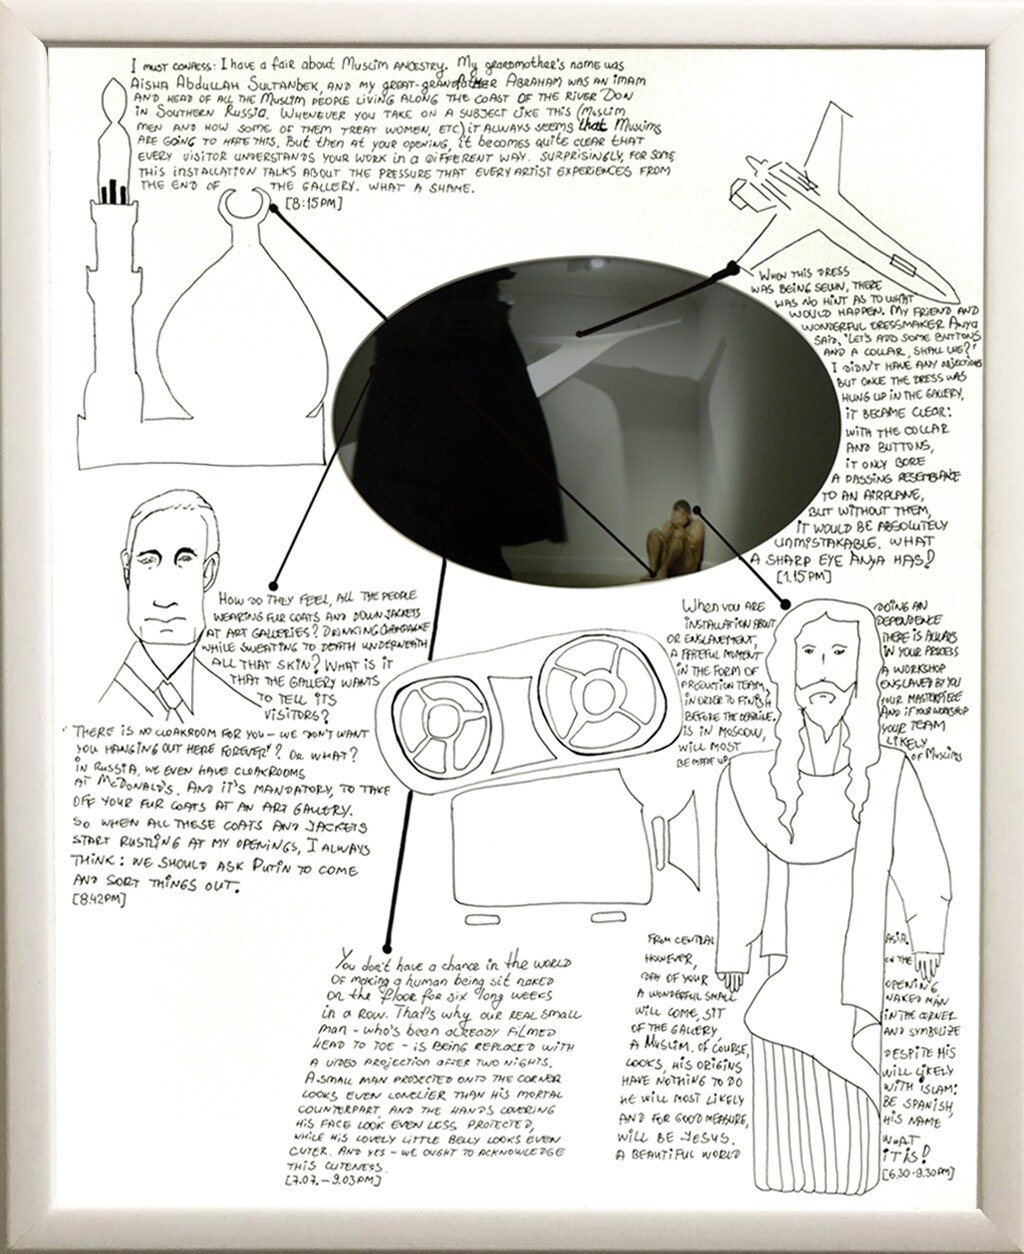 I must confess: I have a fair about Muslim ANCESTRY. My grandmother's name was
Aisha Abdullah Sultanbek, and my great-grandfather Abraham was an imam
and head of all the Muslim people living along the coast of the river Don
in Southern Russia. Whenever you take on a subject like this (Muslim
men and how some of them treat women, etc) it always seems that Muslims
are going to hate this. But then at your opening, it becomes quite clear that
every visitor understands your work in a different way. Surprisingly, for some,
this installation talks about the pressure that every artist experiences from
the end of the gallery. What a shame.
[8:15PM]
When this dress
was being sewn, there
was no hint as to what
would happen. My friend and
wonderful dressmaker Anya
said, "Let's add some buttons
and a collar, shall we?"
I didn't have any objections
but once the dress was
hung up in the gallery,
it became clear:
with the collar
and buttons,
it only bore
a passing resemblance
to an airplane,
but without them,
it would be absolutely
unmistakable. What
a sharp eye Anya has!
[1.15PM]
How do they feel, all the people
wearing fur coats and down jackets
at art galleries? Drinking champagne
while sweating to death underneath
all that skin? What is it
that the gallery wants
to tell its
visitors?
"There is no cloakroom for you – we don't want
you hanging out here forever"? Or what?
In Russia, we even have cloakrooms
at McDonald's. And it's mandatory, to take
off your fur coats at an art gallery.
So when all these coats and jackets
start rustling at my openings, I always
think: we should ask Putin to come
and sort things out.
[8:42PM]
When you are doing an
installation about dependence
or enslavement, there is always
a fateful moment in your process
in the form of a workshop
production team, enslaved by you
in order to finish your masterpiece
before the deadline. And if your workshop
is in Moscow, your team
will most likely
be made up of Muslims
from Central Asia.
However, on the
day of your opening,
a wonderful small naked man
will come, sit in the corner
of the gallery and symbolize
a Muslim. Of course, despite his
looks, his origins will likely
have nothing to do with Islam:
he will most likely be Spanish,
and for good measure, his name
will be Jesus. What
a beautiful world it is!
[6.30-9.30PM]
You don't have a chance in the world
of making a human being sit naked
on the floor for six long weeks
in a row. That's why our real small
man – who's been already filmed
head to toe – is being replaced with
a video projection after two nights.
A small man projected onto the corner
looks even lonelier than his mortal
counterpart, and the hands covering
his face look even less protected,
while his lovely little belly looks even
cuter. And yes – we ought to acknowledge
this cuteness.
[7.07. – 9.03PM]